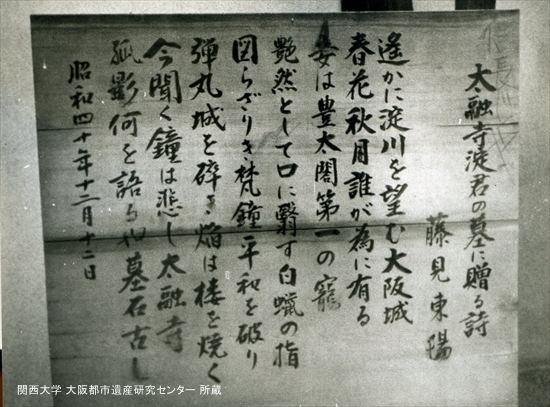 太融寺淀君の墓に贈る詩
藤見東陽
遙かに淀川を望む大阪城
春花秋月誰が為に有る
妾は豊太閤第一の寵
艶然として口に翳す白蝋の指
図らざりき梵鐘平和を破り
弾丸城を砕き焔は楼を焼く
今聞く鐘は悲し太融寺
孤影何を語るや墓石古し
昭和四十年十二月十二日
関西大学 大阪都市遺産研究センター 所蔵